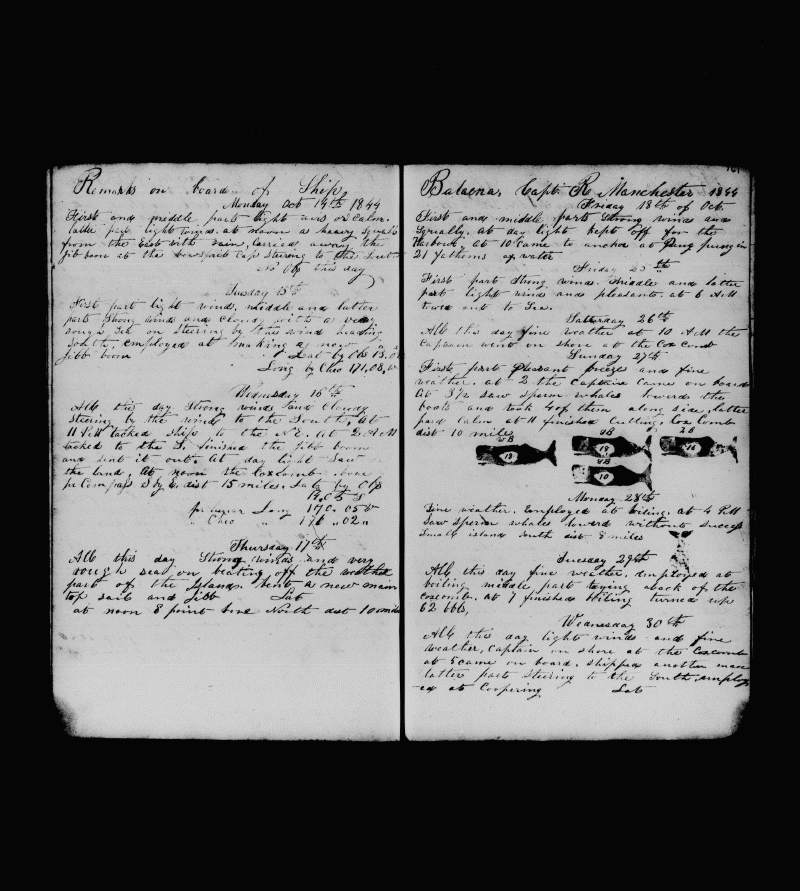 Remarks on board of Ship
Monday Oct 14th 1844
First and middle parts light airs or Calm.
latter part light winds. at noon a heavy squall
from the east with rain, Carried away the
jib boom at the bowsprit Cap Steering to the South
No Obs this day
Tuesday 15th
First part light winds, middle and latter
parts Strong winds and Cloudy with a very
rough Sea on Steering by the wind heading
South, employed at making a new
Jibb boom Lat by Obs 15,0
Long by Chro 171,08, W
Wednesday 16th
All this day Strong winds and Cloudy
Steering by the wind to the South, At
11 P.M tacked Ship to the N.E. At 2 A.M
tacked to the S. finished the jibb boom
and sent it out. At day light Saw
the land, At noon the Coxcomb bore
pr Compass S by E. dist 15 miles. Lat by Obs
Long 170. 05 W
" Chro " 171 ,, 02 "
Thursday 17th
All this day Strong winds and very
rough sea on beating off the weather
part of the Island. bent a new main
top sail and Jibb Lat
at noon 8 point bore North dist 10 miles
Balaena, Capt R Manchester 1844
Friday 18th of Oct.
First and middle parts Strong winds and
Squally. At day light kept off for the
Harbour, At 10 Came to anchor at
21 fathoms of water
Friday 25th
First part Strong winds. Middle and latter
part light winds and pleasant. at 6 A.M
towed out to Sea.
Saturday 26th
All this day fine weather at 10 A.M the
Captain went on shore at the Coxcomb
Sunday 27th
First part Pleasant breeze and fine
weather. at 2 the Captain Came on board
At 3½ saw sperm whales lowerd the
boats and took 4 of them along side, latter
part Calm at 11 finished Cutting, Coxcomb
dist 10 miles
WB
SB
LB
18
19
14
SB
10
Monday 28th
Fine weather. Employed at boiling. at 4 P.M
Saw Sperm whales lowerd without Success
Small island South dist 8 miles
Tuesday 29th
All this day fine weather. Employed at
boiling middle part laying aback of the
coxcomb. at 7 finished boiling turned up
62 bbls,
Wednesday 30th
All this day light winds and fine
Weather, Captain on shore at the Coxcomb
at 5 came on board. Shipped another man
latter part Steering to the South, employ
ed at Coopering Lat